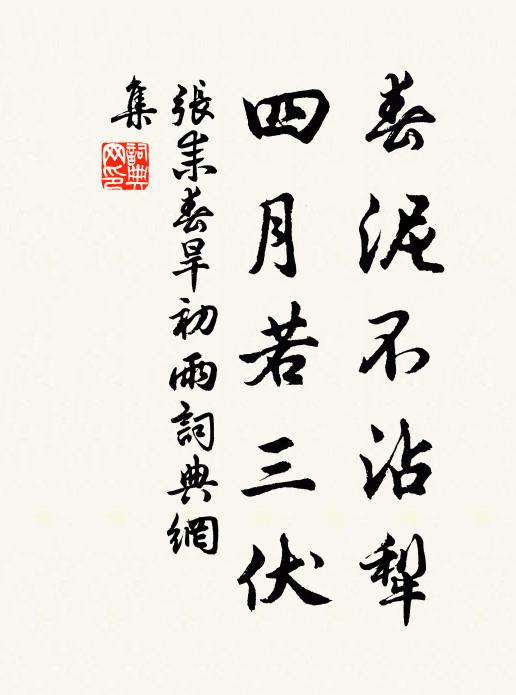 春泥不沾犁
四月若三伏
張耒春旱初雨詞典網
集
詞典
网印